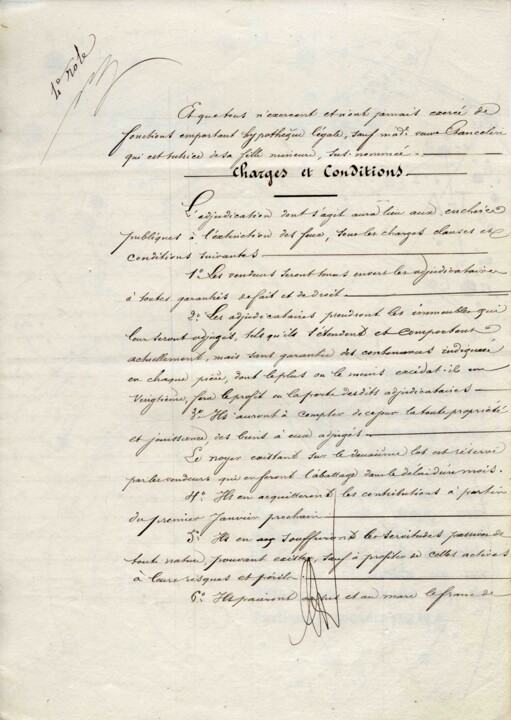 4e rôle
Et que tous n'exercent et n'ont jamais exercé de
fonctions emportant hypothèque légale, sauf made veuve Chancelin
qui est tutrice de sa fille mineure, sus-nommée.
Charges et Conditions
L'adjudication dont s'agit aura lieu aux enchères
publiques à l'extinction des feux, sous les charges clauses et
conditions suivantes
1° Les vendeurs seront tenus envers les adjudicataires
à toutes garanties de fait et de droit.
2° Les adjudicataires prendront les immeubles qui
leur seront adjugés, tels qu'ils s'étendent et comportent
actuellement, mais sans garantie des contenances indiquées
en chaque pièce, dont le plus ou le moins excédat-il un
vingtième, fera le profit ou la perte desdits adjudicataires
3° Ils auront à compter de ce jour la toute propriété
et jouissance, des biens à eux adjugés.
Le noyer existant sur le deuxième lot est réservé
par les vendeurs qui en feront l'abattage dans le délai d'un mois.
4° Ils en acquitteront les contributions à partir
du premier Janvier prochain
5° Ils en souffriront les servitudes passives de
toute nature, pouvant exister, sauf à profiter de celles actives
à leurs risques et périls.
6° Ils paieront et au marc le franc de